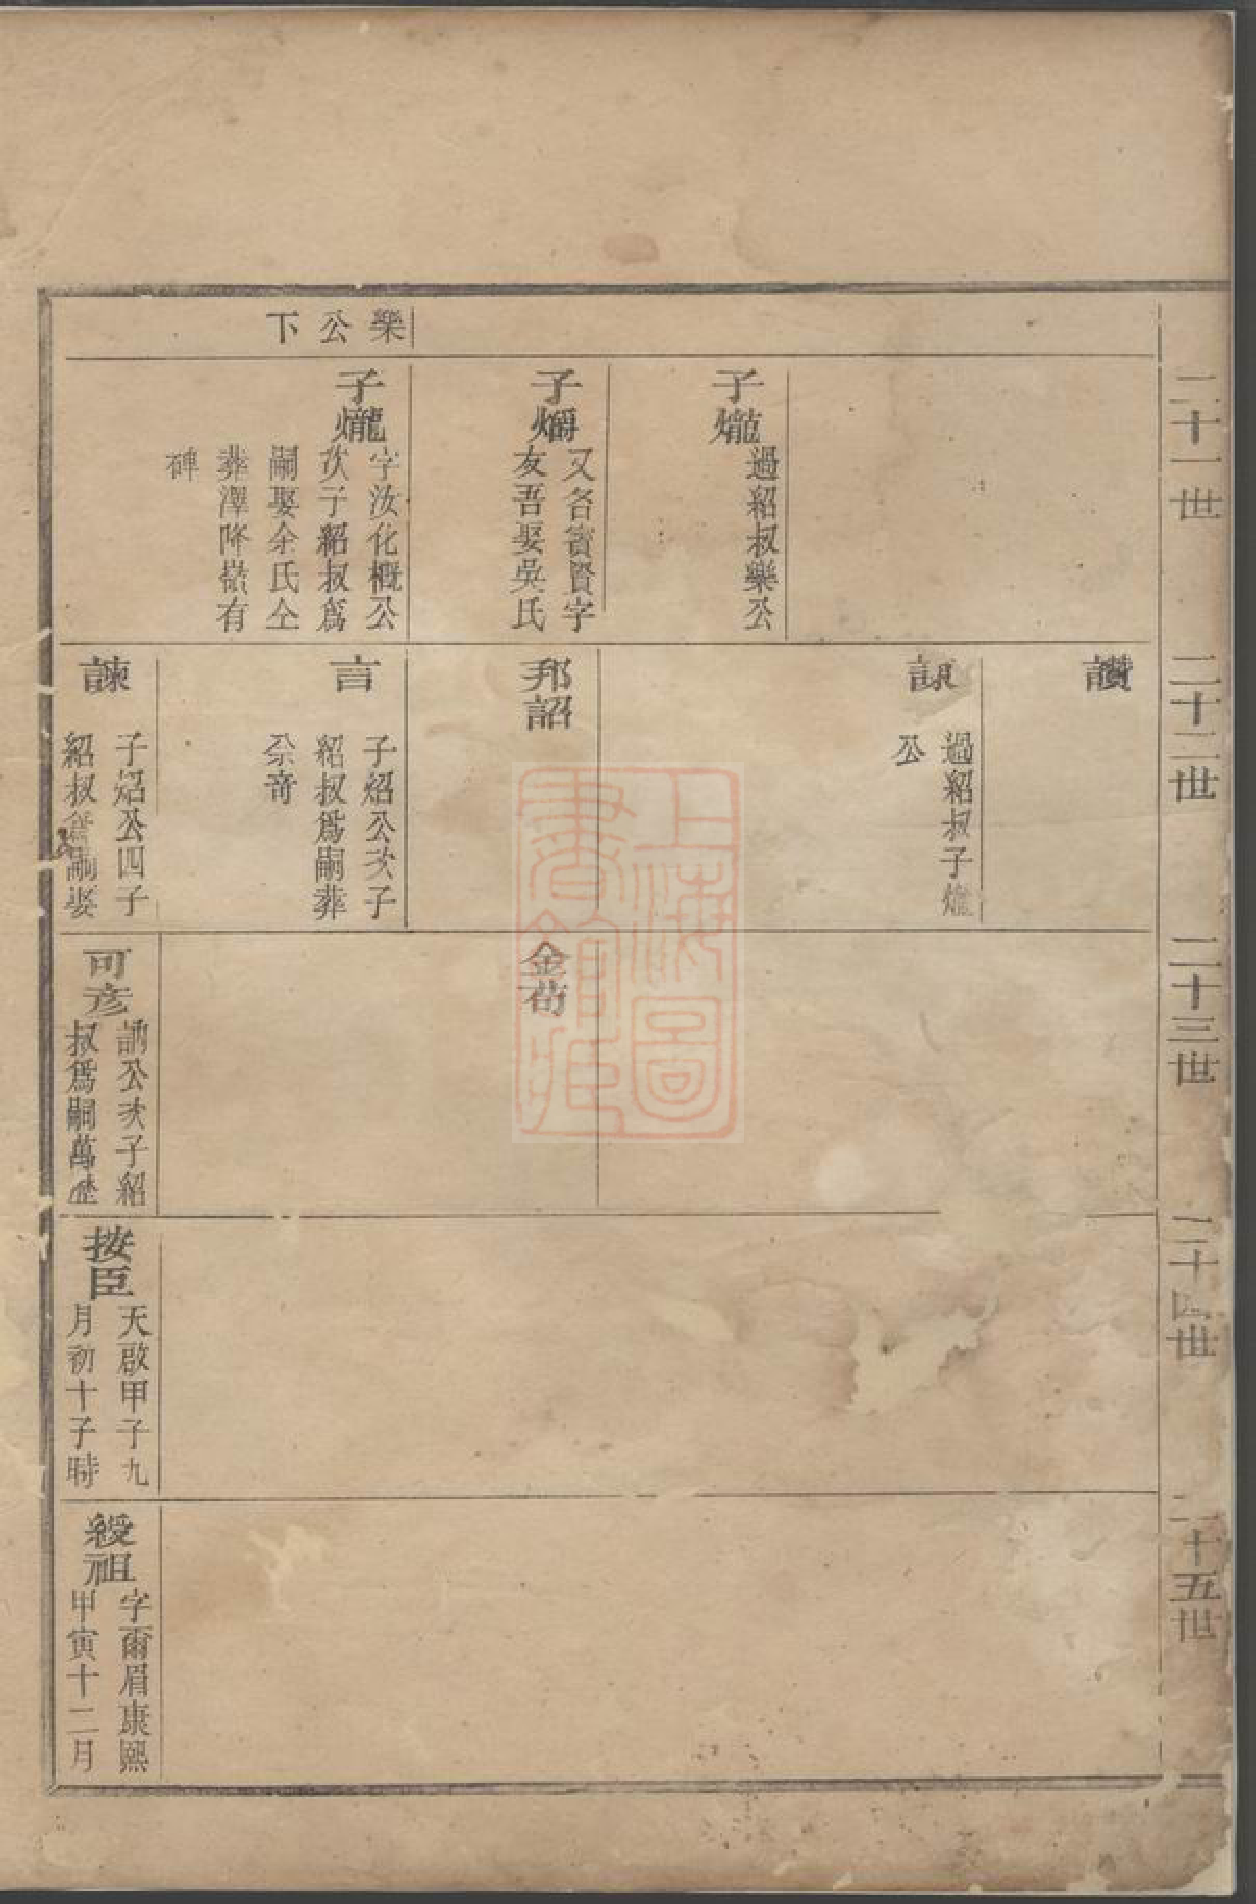 二十一世
二十二世
二十三世
二十四世
二十五世
樂公下
子爖
過紹叔樂公
子爝
又名賓賢字
友吾娶吳氏
子爖
字汝化概公
次子紹叔爲
嗣娶余氏仝
葬澤降嶺有
碑
讚
訊
過紹叔子爖
公
邦詔
言
子炤公次子
紹叔爲嗣葬
佘竒
諫
子炤公四子
紹叔爲嗣娶
金苟
可彥
訥公次子紹
叔爲嗣萬歷
按臣
天啟甲子九
月初十子時
綬祖
字爾眉康熙
甲寅十二月
上海圖書館藏